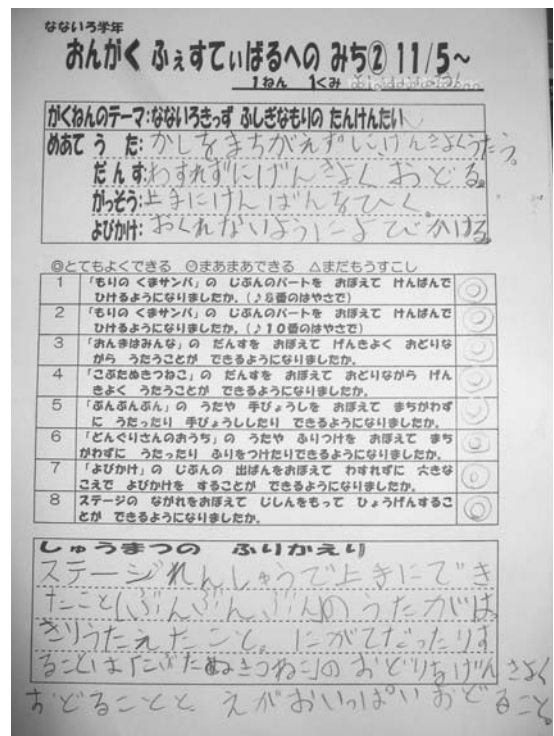 なないろ学年
おんがく ふぇすてぃばるへの みち② 11/5~
1ねん 1くみ
がくねんのテーマ:なないろきっず ふしぎなもりの たんけんたい
めあて う た:かしをまちがえずに、げんきよくうたう。
だ ん す:わすれずにげんきよく おどる。
がっそう:上手にけんばんをひく。
よびかけ:おくれないようによびかける。
◎とてもよくできる ○まあまあできる △まだもうすこし
1 「もりの くまサンバ」の じぶんのパートを おぼえて けんばんで
ひけるようになりましたか。(♪8番のはやさで) ◎
2 「もりの くまサンバ」の じぶんのパートを おぼえて けんばんで
ひけるようになりましたか。(♪10番のはやさで) ◎
3 「おんまはみんな」の だんすを おぼえて げんきよく おどりな
がら うたうことが できるようになりましたか。 ◎
4 「こぶたぬきつねこ」の だんすを おぼえて おどりながら げん
きよく うたうことが できるようになりましたか。 ◎
5 「ぶんぶんぶん」の うたや 手びょうしを おぼえて まちがわず
に うたったり 手びょうししたり できるようになりましたか。 ◎
6 「どんぐりさんのおうち」の うたや ふりつけを おぼえて まち
がわずに うたったり ふりをつけたりできるようになりましたか。 ◎
7 「よびかけ」の じぶんの 出ばんをおぼえて わすれずに 大きな
こえで よびかけを することが できるようになりましたか。 ◎
8 ステージの ながれをおぼえて じしんをもって ひょうげんするこ
とが できるようになりましたか。 ◎
しゅうまつの ふりかえり
ステージれんしゅうで上手にでき
たこと「ぶんぶんぶん」のうたがはっ
きりうたえたこと。にがてだったりす
ることは「こぶたぬきつねこ」の おどりをげんきよく
おどることと えがおいっぱいおどること。